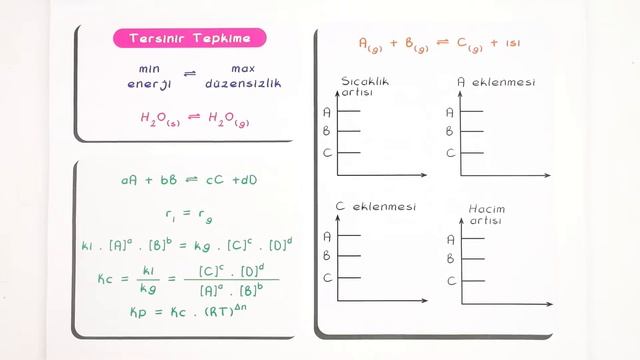 Tersinir Tepkime
min enerji ⇌ max düzensizlik
H₂O(s) ⇌ H₂O(g)
aA + bB ⇌ cC +dD
rı = rg
kı . [A]ᵃ . [B]ᵇ = kg . [C]ᶜ . [D]ᵈ
Kc = kı / kg = [C]ᶜ . [D]ᵈ / [A]ᵃ . [B]ᵇ
Kp = Kc . (RT)^Δn
A(g) + B(g) ⇌ C(g) + ısı
Sıcaklık artısı
A
B
C
A eklenmesi
A
B
C
C eklenmesi
A
B
C
Hacim artısı
A
B
C